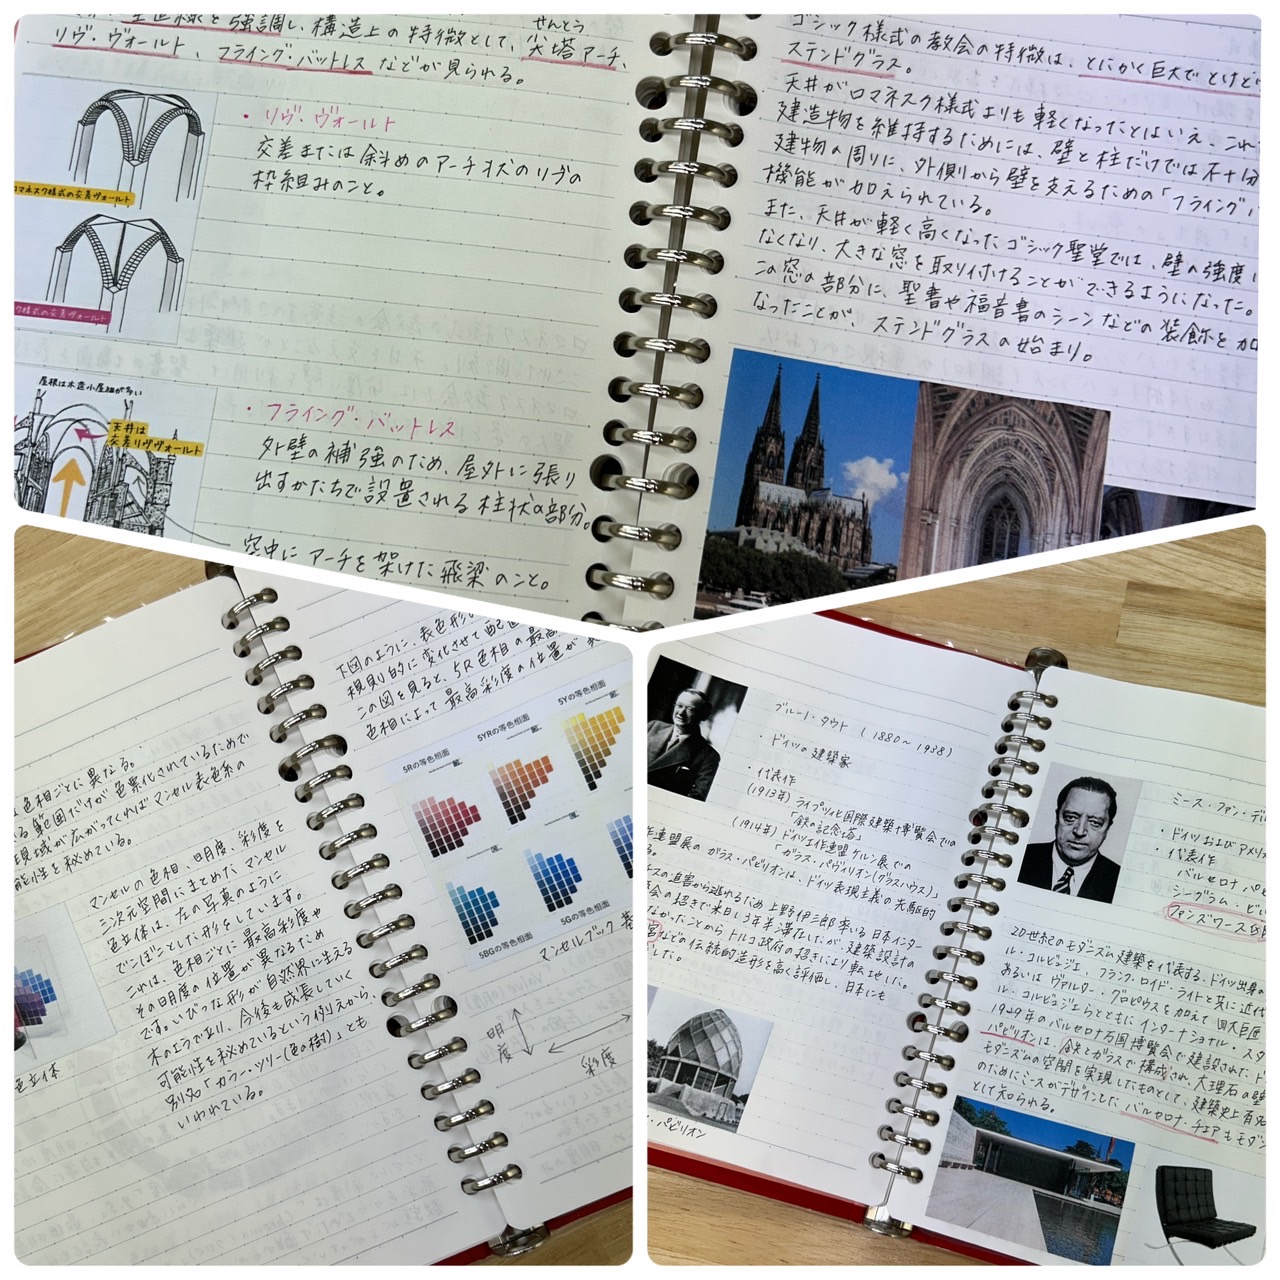 垂直線を強調し、構造上の特徴として、尖塔アーチ、
せんとう
リヴ・ヴォールト、フライング・バットレスなどが見られる。
・リヴ・ヴォールト
交差または斜めのアーチ状のリブの
枠組みのこと。
マネスク様式の交差ヴォールト
ク様式の交差ヴォールト
屋根は木造小屋組が多い
天井は
交差リヴヴォールト
・フライング・バットレス
外壁の補強のため、屋外に張り
出すかたちで設置される柱状の部分。
空中にアーチを架けた飛梁のこと。
ゴシック様式の教会の特徴は、とにかく巨大でとけど
ステンドグラス。
天井がロマネスク様式よりも軽くなったとはいえ、これ
建造物を維持するためには、壁と柱だけでは不十分
建物の周りに、外側から壁を支えるための「フライング
機能が加えられている。
また、天井が軽く高くなったゴシック聖堂では、壁の強度
なくなり、大きな窓を取り付けることができるようになった。
この窓の部分に、聖書や福音書のシーンなどの装飾を加
なったことが、ステンドグラスの始まり。
色相ごとに異なる。
る範囲だけが色票化されているためで
現域が広がってくればマンセル表色系の
能性を秘めている。
マンセルの色相、明度、彩度を
三次元空間にまとめた、マンセル
色立体は、左の写真のように
でこぼことした形をしています。
これは、色相ごとに最高彩度や
その明度の位置が異なるため
です。いびつな形が自然界に生える
木のようであり、今後も成長していく
可能性を秘めているという例えから、
別名「カラー・ツリー(色の樹)」とも
いわれている。
色立体
下図のように、表色形
規則的に変化させて配
この図を見ると、5R色相の最高
色相によって最高彩度の位置が
5Rの等色相面
5YRの等色相面
5Yの等色相面
5BGの等色相面
5Gの等色相面
マンセルブック
明度
彩度
ブルーノ・タウト (1880~1938)
・ドイツの建築家
・代表作
(1913年) ライプツィヒ国際建築博覧会での
「鉄の記念塔」
(1914年) ドイツ工作連盟ケルン展での
「ガラス・パヴィリオン(グラスハウス)」
作連盟展のガラス・パビリオンは、ドイツ表現主義の先駆的
る。
スの迫害から逃れるため上野伊三郎率いる日本インター
会の招きで来日し3年半滞在したが、建築設計の
なかったことからトルコ政府の招きにより転地した。
宮などの伝統的造形を高く評価し、日本にも
した。
・パビリオン
ミース・ファン・デ
・ドイツおよびアメリカ
・代表作
バルセロナパビ
シーグラム・ビル
ファンズワース邸
20世紀のモダニズム建築を代表する、ドイツ出身の
ル・コルビュジエ、フランク・ロイド・ライトと共に近代
あるいはヴァルター・グロピウスを加えて四大巨匠
ル・コルビュジエらとともにインターナショナル・スタ
1929年のバルセロナ万国博覧会で建設されたド
パビリオンは、鉄とガラスで構成され、大理石の壁
モダニズムの空間を実現したものとして、建築史上有名
のためにミースがデザインした、バルセロナ・チェアもモダン
として知られる。